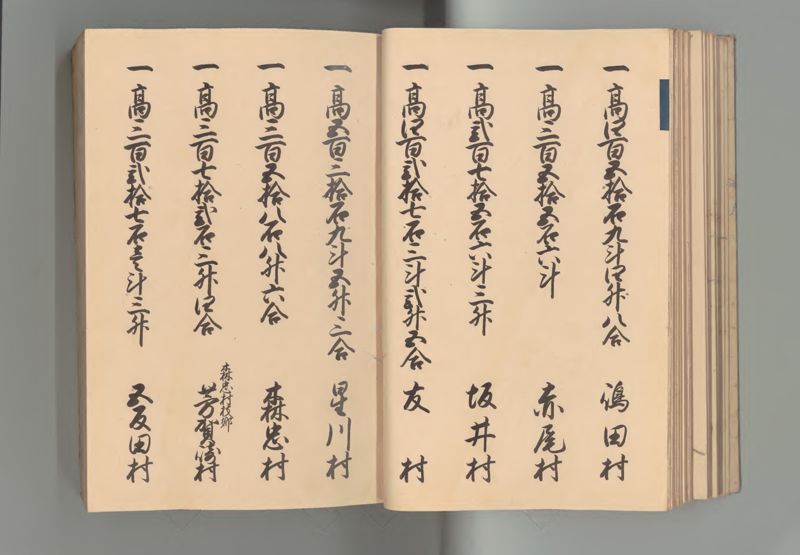 一 高四百五拾石九斗四升八合 嶋田村
一 高三百五拾五石六斗 赤尾村
一 高弐百七拾五石六斗三升 坂井村
一 高四百弐拾七石三斗弐升五合 友村
一 高五百三拾石九斗五升三合 星川村
一 高三百五拾八石八升六合 森忠村
一 高三百七拾弐石三升四合 森忠村枝郷 芳賀崎村
一 高三百弐拾七石壱斗三升 五反田村